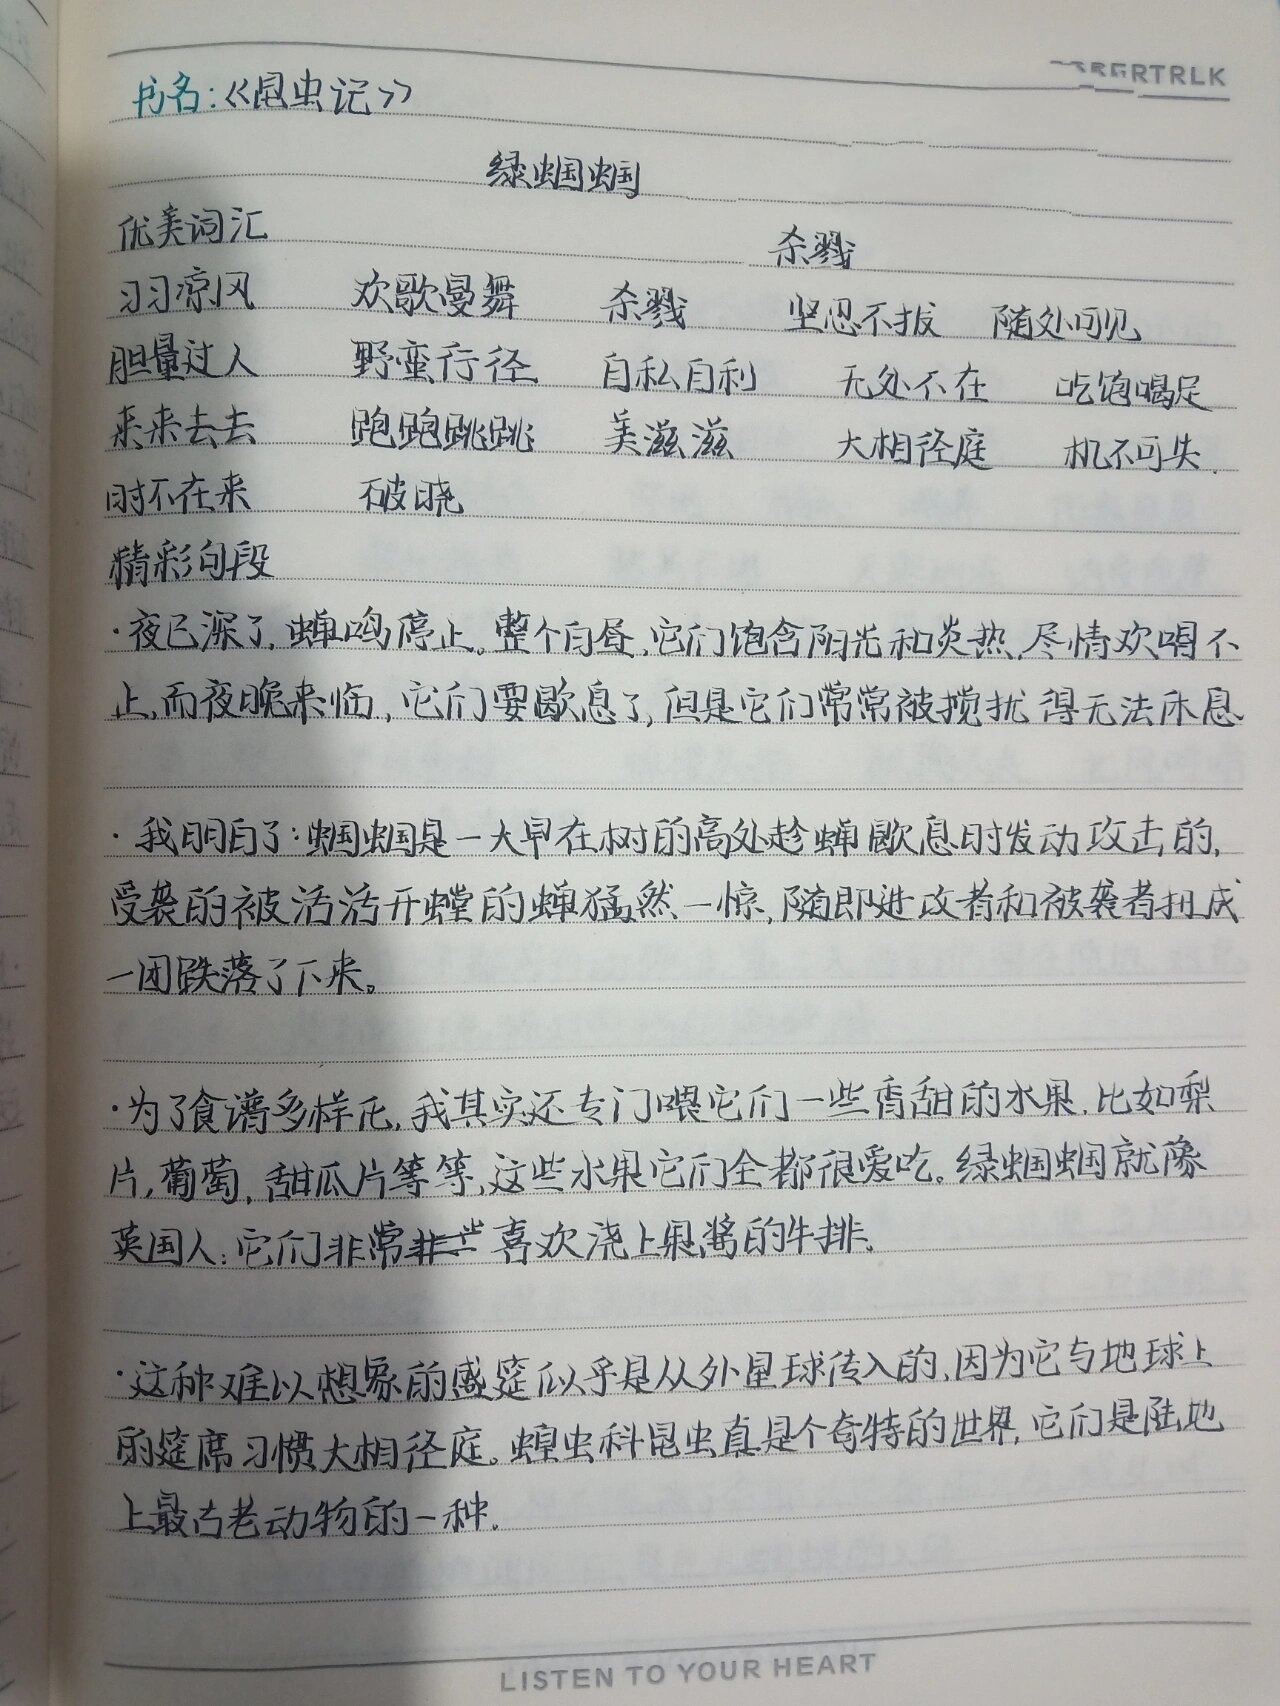 书名:《昆虫记》
绿蝈蝈
优美词汇
杀戮
习习凉风 欢歌曼舞 杀戮 坚忍不拔 随处可见
胆量过人 野蛮行径 自私自利 无处不在 吃饱喝足
来来去去 跑跑跳跳 美滋滋 大相径庭 机不可失,
时不在来 破晓
精彩句段
·夜已深了,蝉鸣停止。整个白昼,它们饱含阳光和炎热,尽情欢唱不
止,而夜晚来临,它们要歇息了,但是它们常常被搅扰得无法休息
·我明白了:蝈蝈是一大早在树的高处趁蝉歇息时发动攻击的,
受袭的被活活开螳的蝉猛然一惊,随即进攻者和被袭者扭成
一团跌落了下来。
·为了食谱多样化,我其实还专门喂它们一些香甜的水果,比如梨
片,葡萄,甜瓜片等等,这些水果它们全都很爱吃。绿蝈蝈就像
英国人:它们非常喜欢浇上果酱的牛排,
·这种难以想象的盛筵似乎是从外星球传入的,因为它与地球上
的筵席习惯大相径庭。蝗虫科昆虫真是个奇特的世界,它们是陆地
上最古老动物的一种,
LISTEN TO YOUR HEART